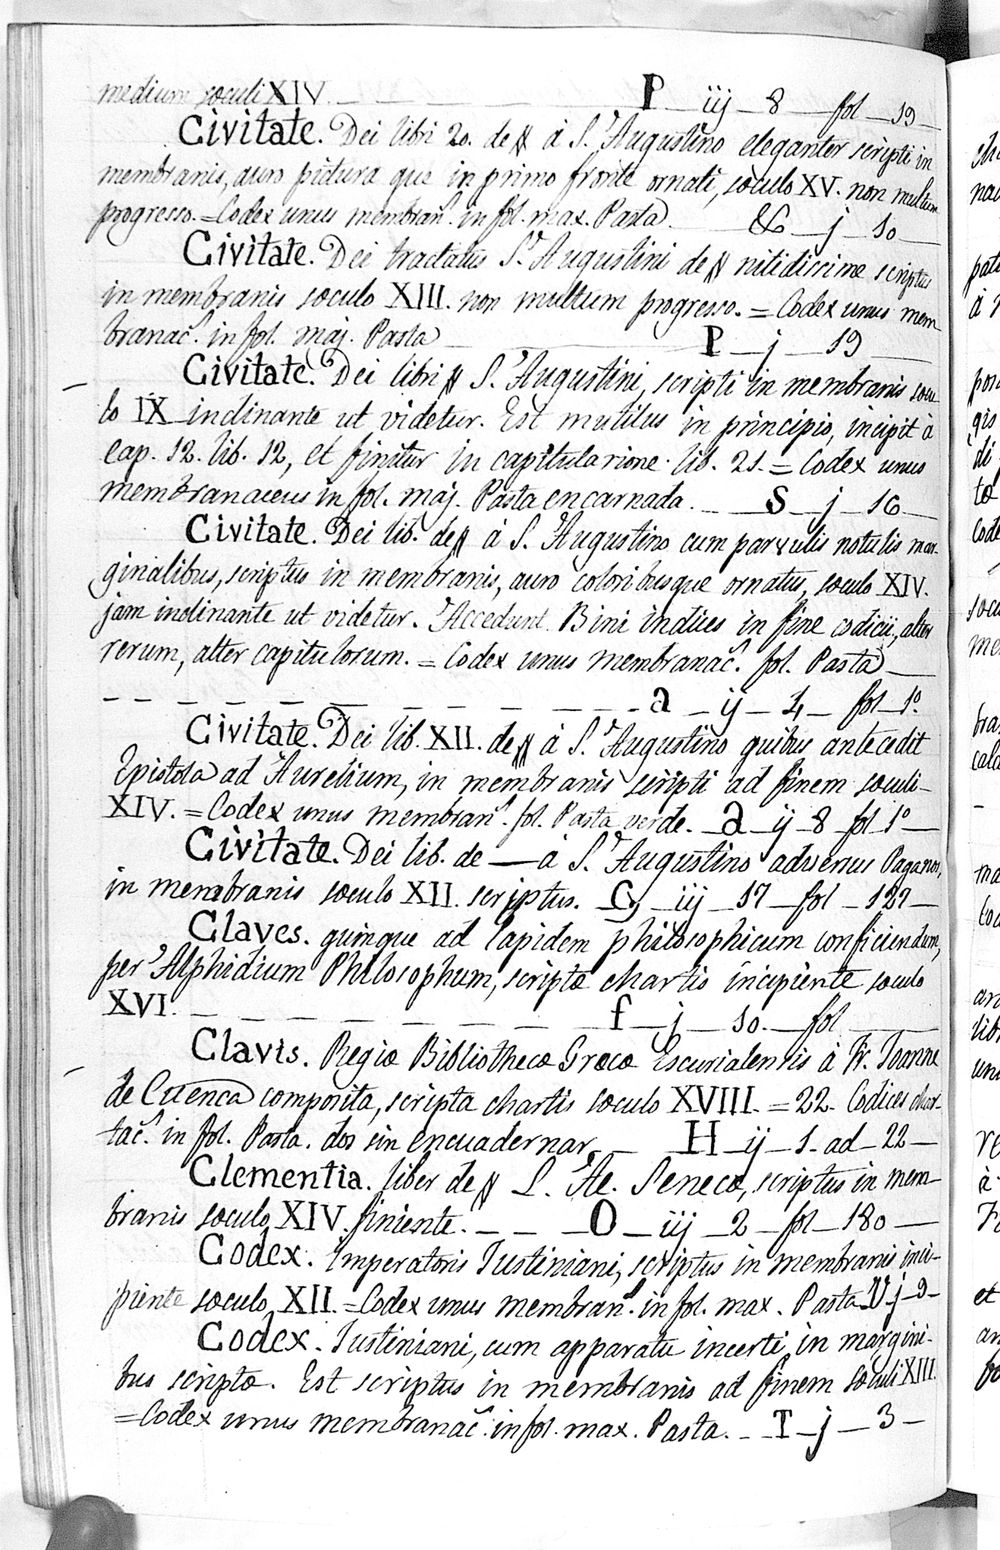 medium sæculi XIV. P iij 8 fol 19
Civitate. Dei libri 20. de à S. Augustino eleganter scripti in
membranis, auro pictura que in primo fronte ornati, sæculo XV. non multum
progresso. = Codex unus membran. in fol. max. Pasta & j 10
Civitate. Dei tractatus S. Augustini de nitidissime scriptus
in membranis sæculo XIII. non multum progresso. = Codex unus mem
branac. in fol. maj. Pasta P j 19
Civitate. Dei libri S. Augustini, scripti in membranis sæcu
lo IX inclinante ut videtur. Est mutilus in principio, incipit à
cap. 12. lib. 12, et finitur in capitula rione. lib. 21. = Codex unus
membranaceus in fol. maj. Pasta encarnada. S j 16
Civitate. Dei lib. de à S. Augustino cum parvulis notulis mar-
ginalibus, scriptus in membranis, auro coloribusque ornatus, sæculo XIV.
jam inclinante ut videtur. Accedunt Bini indices in fine codicis, alter
rerum, alter capitulorum. = Codex unus membranac. fol. Pasta
a ij 4 fol 1º
Civitate. Dei lib. XII. de à S. Augustino quibus antecedit
Epistola ad Aurelium, in membranis scripti ad finem sæculi
XIV. = Codex unus membran. fol. Pasta verde. a ij 8 fol 1º
Civitate. Dei lib. de — à S. Augustino adversus Paganos,
in membranis sæculo XII. scriptus. G iij 17 fol 127
Claves. quinque ad lapidem philosophicum conficiendum,
per Alphidium Philosophum, scriptæ chartis incipiente sæculo
XVI. f j 10. fol
Clavis. Regiæ Bibliothecæ Græcæ Escurialensis à Fr. Joanne
de Cuenca composita, scripta chartis sæculo XVIII. = 22. Codices char-
tac. in fol. Pasta. dos sin encuadernar. H ij 1. ad 22
Clementia. liber de L. Ae. Senecæ, scriptus in mem-
branis sæculo XIV. finiente. O iij 2 fol 180
Codex. Imperatoris Justiniani, scriptus in membranis inci-
piente sæculo XII. = Codex unus membran. in fol. max. Pasta V j 9
Codex. Justiniani, cum apparatu incerti in margini-
bus scriptæ. Est scriptus in membranis ad finem sæculi XIII.
= Codex unus membranac. in fol. max. Pasta. T j 3